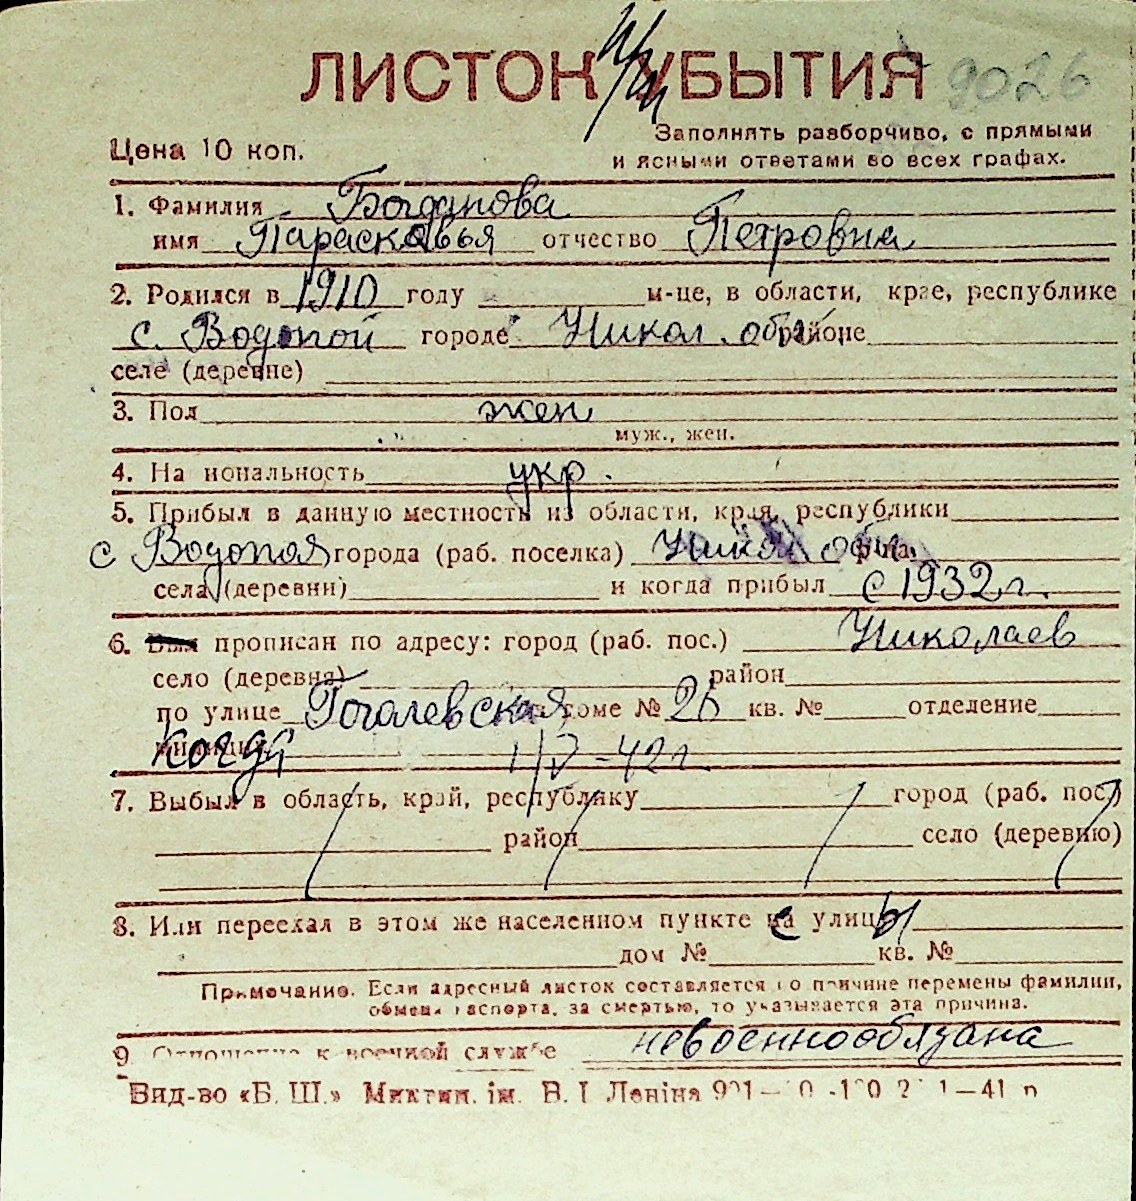 ЛИСТОК УБЫТИЯ 9026
Цена 10 коп.
Заполнять разборчиво, с прямыми
и ясными ответами во всех графах.
1. Фамилия Богданова
имя Парасковья отчество Петровна
2. Родился в 1910 году м-це, в области, крае, республике
с. Водопой городе Никол. обл. районе
селе (деревне)
3. Пол жен
муж., жен.
4. На иональность укр.
5. Прибыл в данную местность из области, края, республики
с Водопоя города (раб. поселка) Никол обл. р-на
села (деревни) и когда прибыл с 1932 г.
6. Был прописан по адресу: город (раб. пос.) Николаев
село (деревня) район
по улице Гоголевская доме № 26 кв. № отделение
когда 1/V-42 г.
7. Выбыл в область, край, республику город (раб. пос.)
район село (деревню)
8. Или переехал в этом же населенном пункте с улицы
дом № кв. №
Примечание. Если адресный листок составляется по причине перемены фамилии,
обмена паспорта, за смертью, то указывается эта причина.
9 Отношение к военной службе невоеннообязана
Вид-во «Б. Ш.» Миктип. ім. В. І Леніна